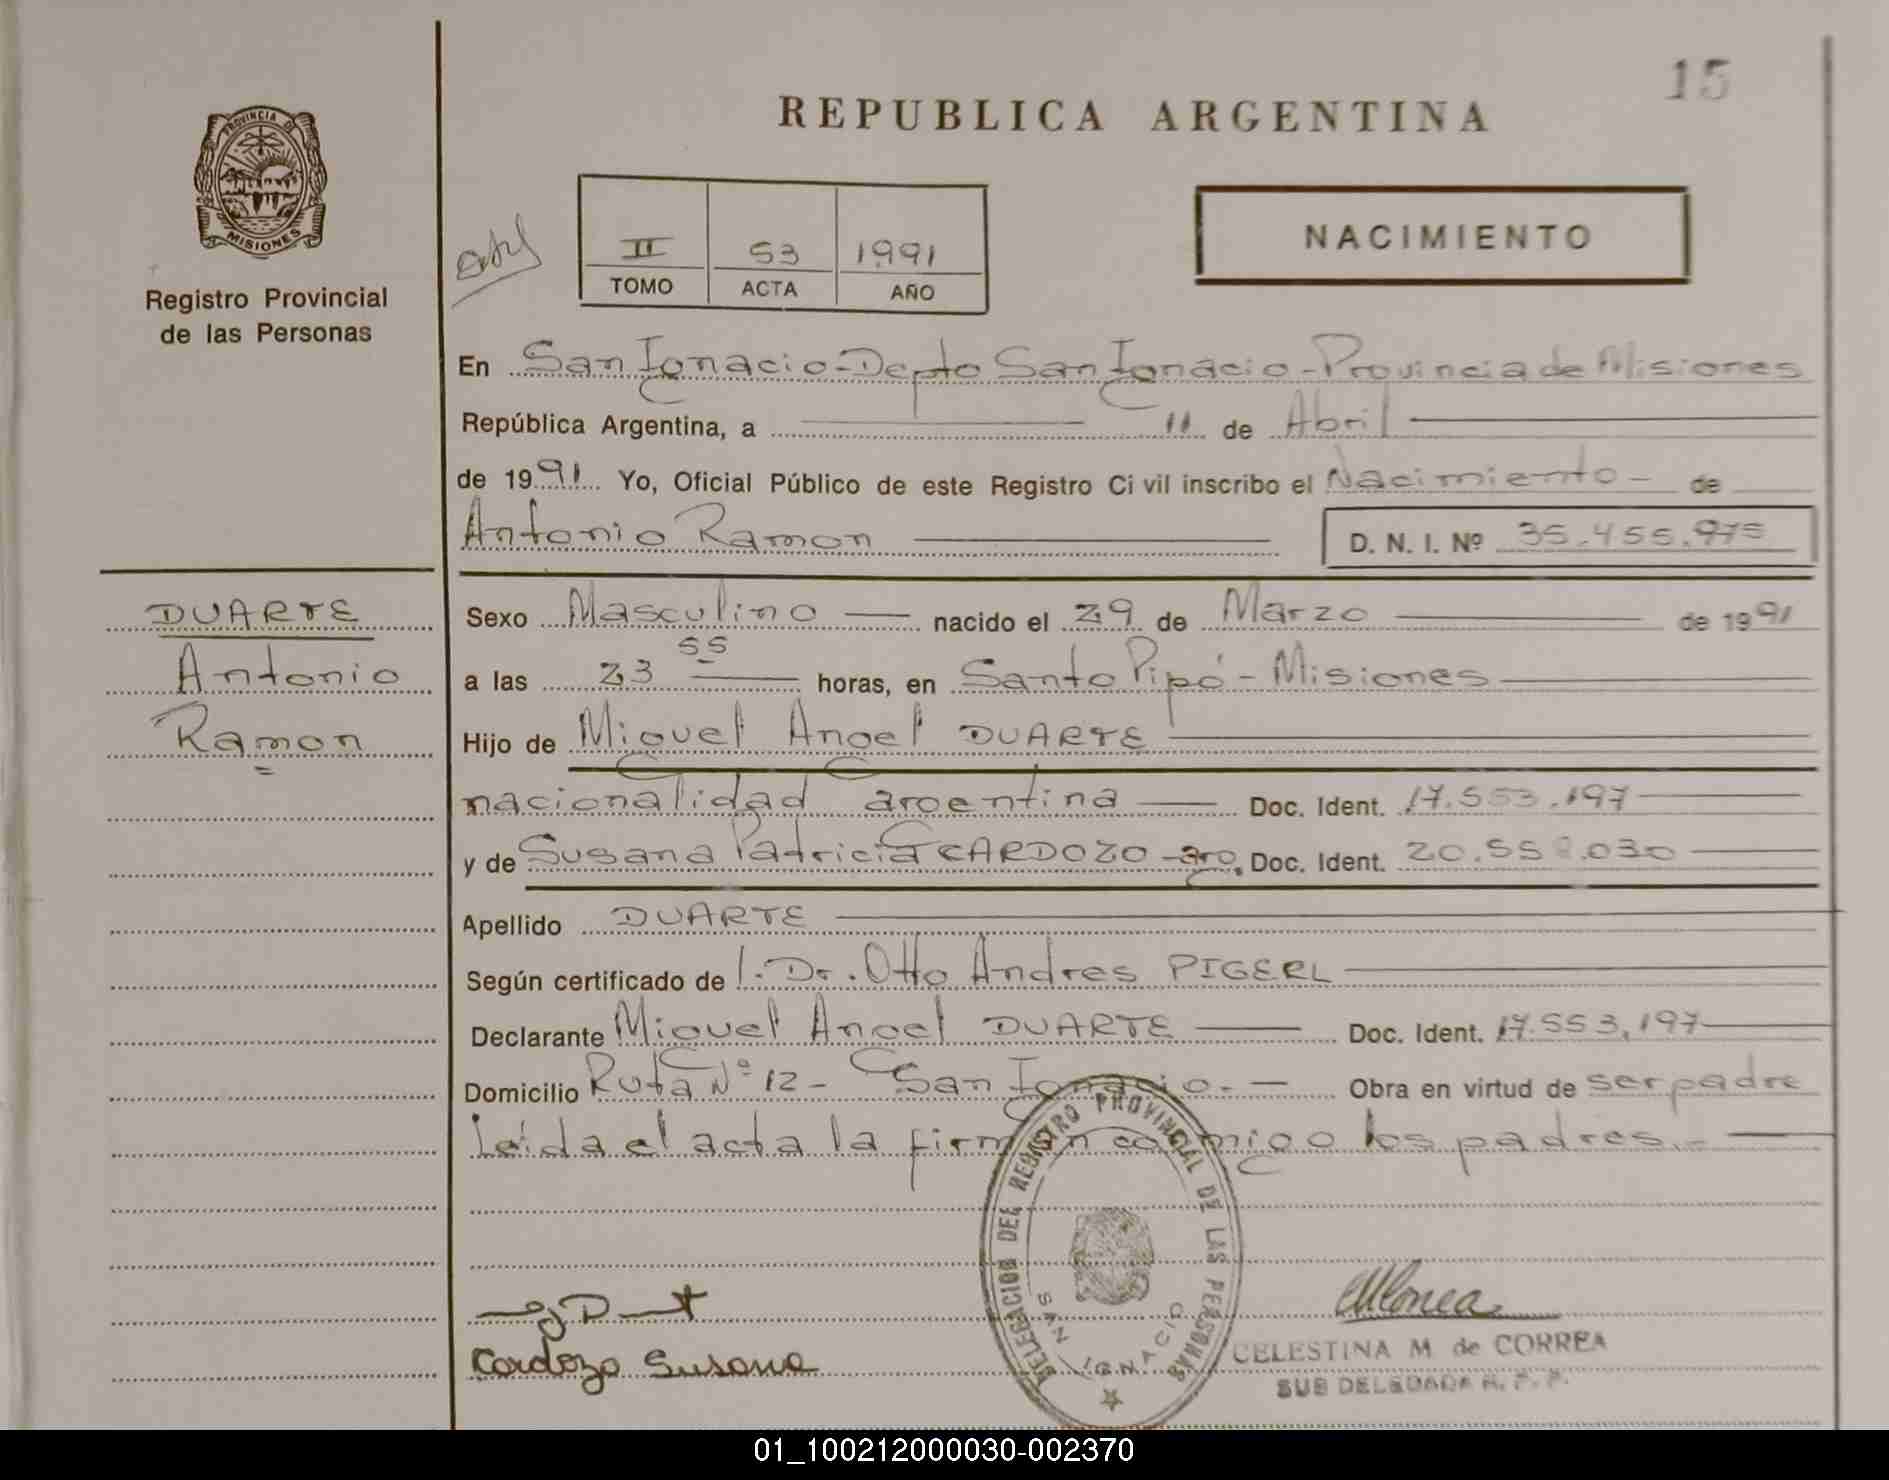 15
REPUBLICA ARGENTINA
PROVINCIA DE
MISIONES
Registro Provincial
de las Personas
II 53 1991
TOMO ACTA AÑO
NACIMIENTO
En San Ignacio - Depto San Ignacio - Provincia de Misiones
República Argentina, a 11 de Abril
de 1991 Yo, Oficial Público de este Registro Ci vil inscribo el Nacimiento - de
Antonio Ramon D. N. I. Nº 35.455.975
DUARTE
Antonio
Ramon
Sexo Masculino nacido el 29 de Marzo de 1991
a las 23 55 horas, en Santo Pipó - Misiones
Hijo de Miguel Angel DUARTE
nacionalidad argentina Doc. Ident. 17.553.197
y de Susana Patricia CARDOZO - arg. Doc. Ident. 20.558.030
Apellido DUARTE
Según certificado de l. Dr. Otto Andres PIGERL
Declarante Miguel Angel DUARTE Doc. Ident. 17.553.197
Domicilio Ruta Nº 12 - San Ignacio. - Obra en virtud de ser padre
Leída el acta la firman conmigo los padres. -
DELEGACION DEL REGISTRO PROVINCIAL DE LAS PERSONAS
SAN IGNACIO
Cardozo Susana
CELESTINA M. de CORREA
SUB DELEGADA R. P. P.
01_100212000030-002370